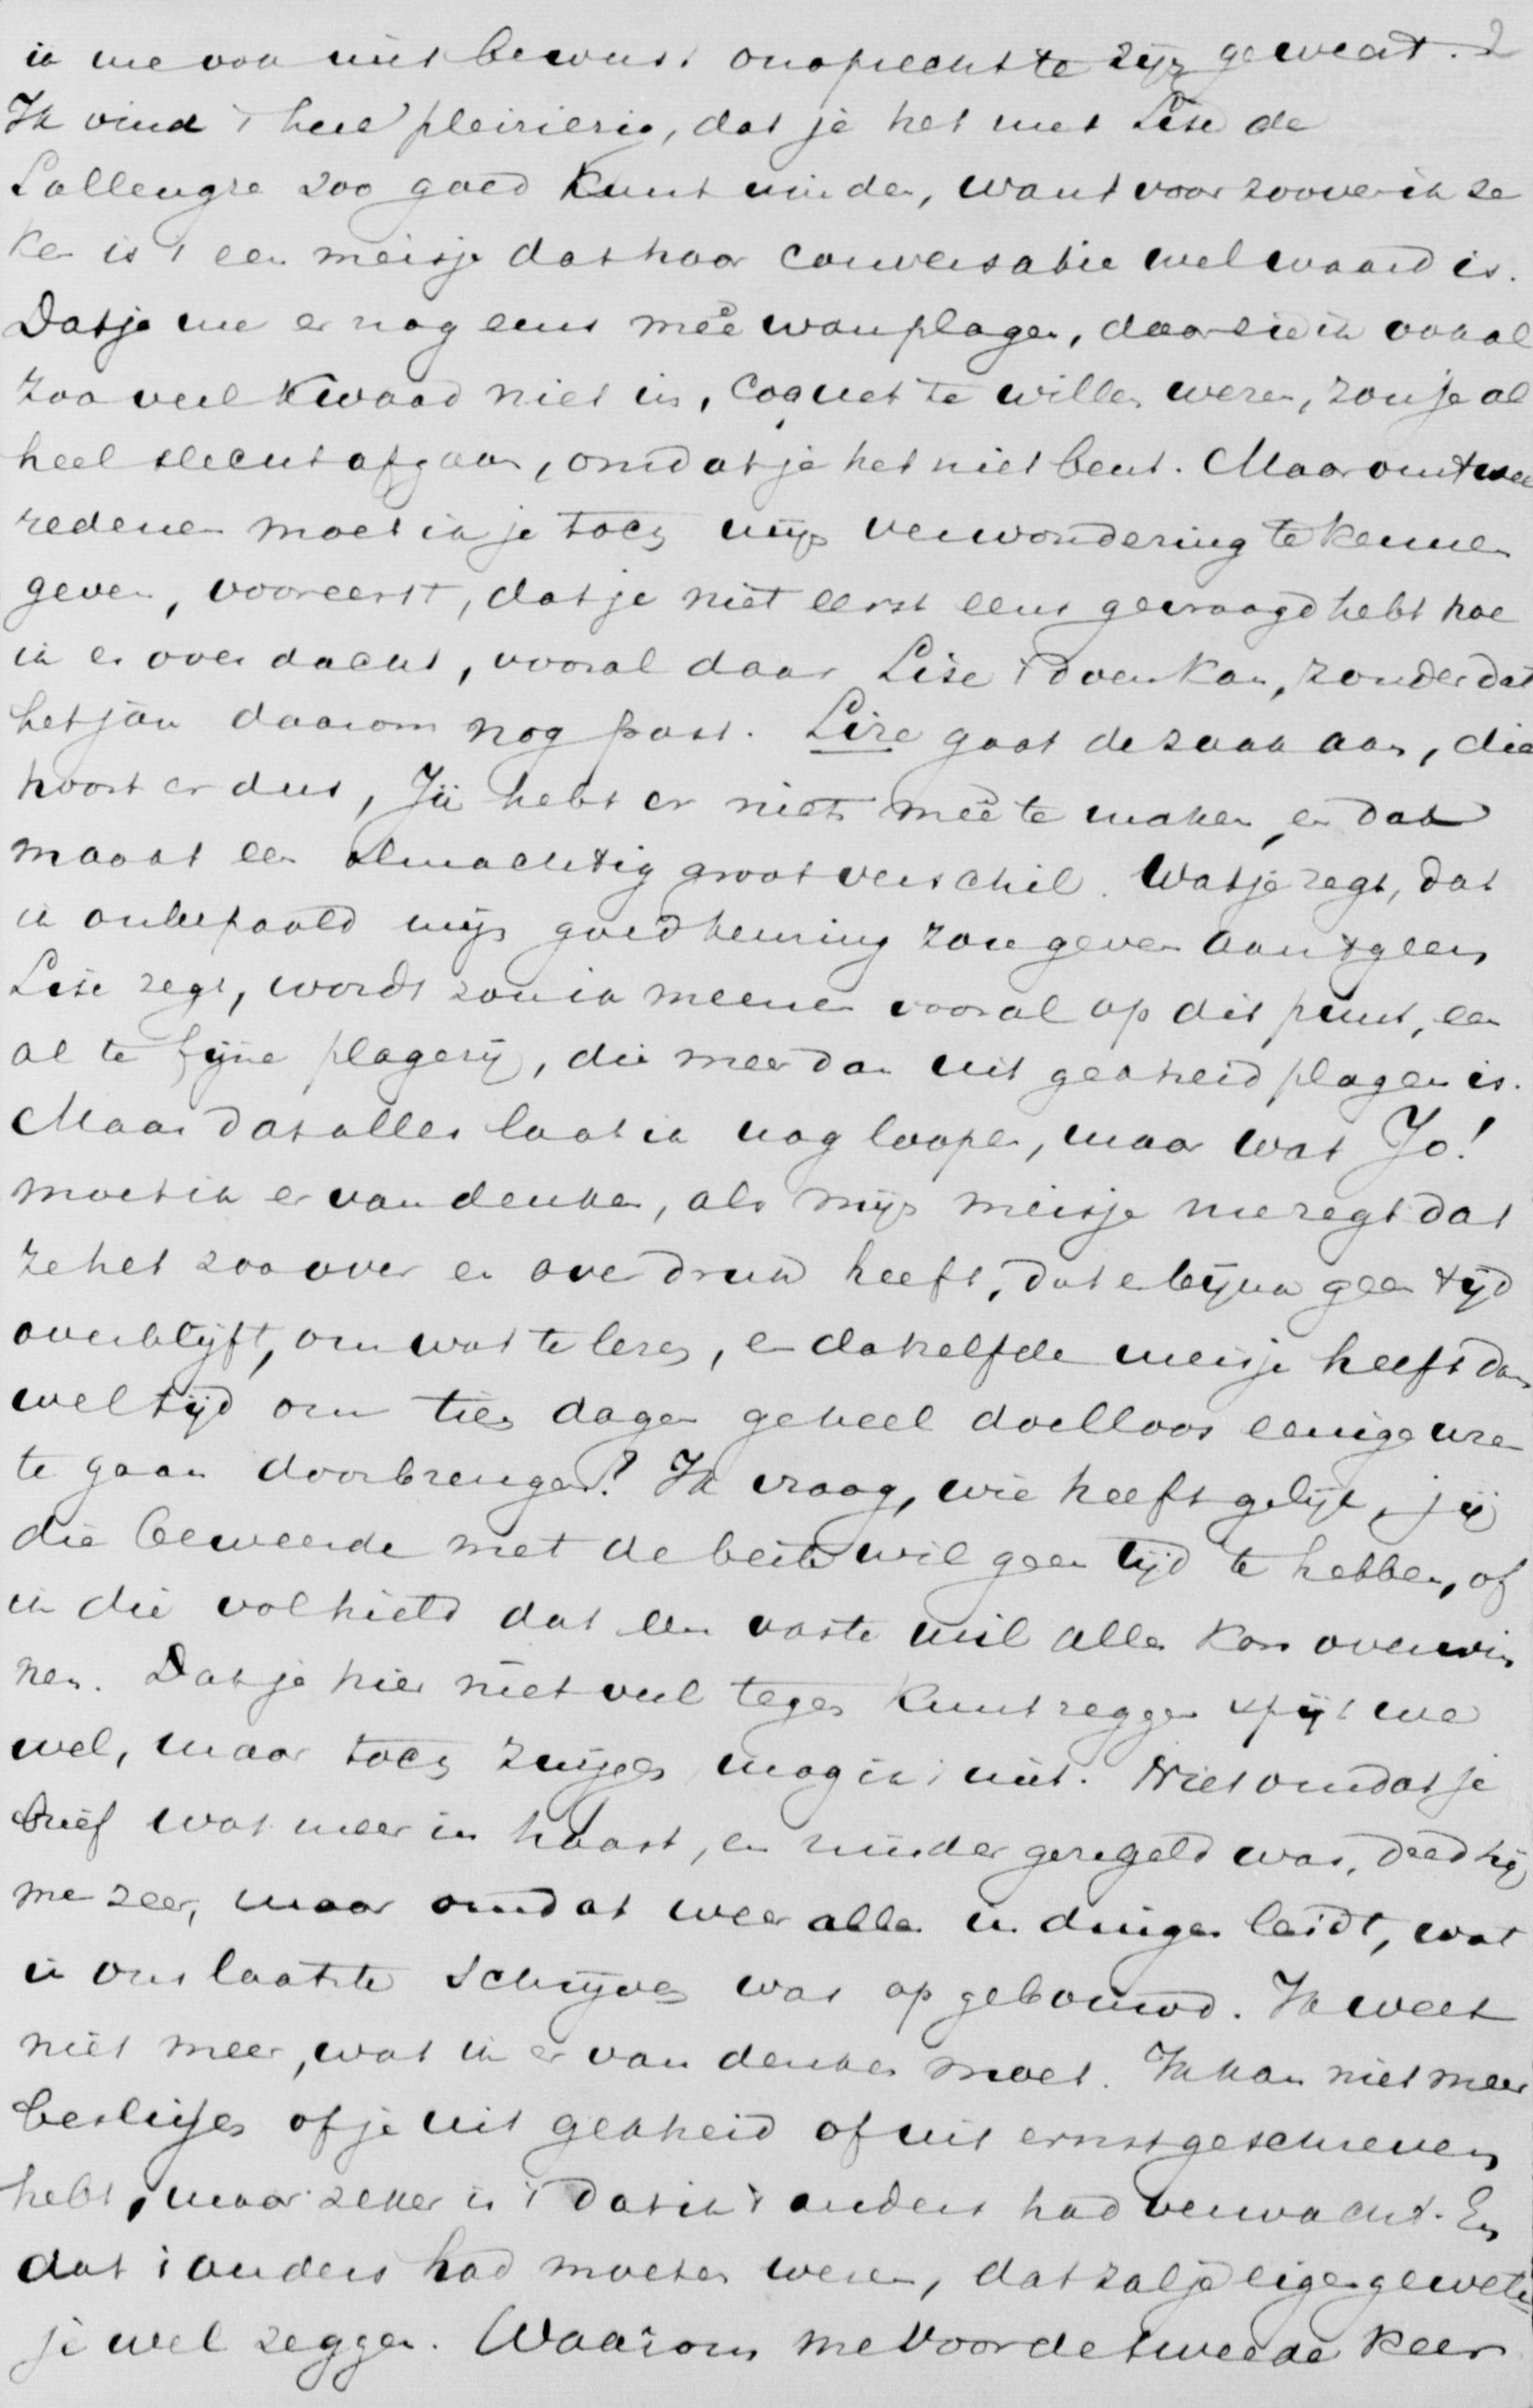 ik me ook niet bewust onoprecht te zijn geweest. 2
Ik vind 't heel pleizierig, dat je het met Lise de
Lallengre zoo goed kunt vinden, want voor zoover ik ze
ken is 't een meisje dat haar conversatie wel waard is.
Dat je me er nog eens meê wou plagen, daar zie ik ook al
zoo veel kwaad niet in, coquet te willen wezen, zou je al
heel slecht afgaan, omdat je het niet bent. Maar om twee
redenen moet ik je toch mijn verwondering te kennen
geven, vooreerst, dat je niet eerst eens gevraagd hebt hoe
ik er over dacht, vooral daar Lise 't doen kan, zonder dat
het jou daarom nog past. Lize gaat de zaak aan, die
hoort er dus, Jij hebt er niets meê te maken, en dat
maakt een almachtig groot verschil. Wat je zegt, dat
ik onbepaald mijn goedkeuring zou geven aan 't geen
Lise zegt, wordt zou ik meenen vooral op dit punt, een
al te fijne plagerij, die meer dan uit gekheid plagen is.
Maar dat alles laat ik nog loopen, maar wat Jo!
moet ik er van denken, als mijn meisje me zegt dat
ze het zoo over en over druk heeft, dat er bijna geen tijd
overblijft, om wat te lezen, en datzelfde meisje heeft dan
wel tijd om tien dagen geheel doelloos eenige uren
te gaan doorbrengen? Ik vraag, wie heeft gelijk, jij
die beweerde met de beste wil geen tijd te hebben, of
ik die volhield dat een vaste wil alles kon overwin
nen. Dat je hier niet veel tegen kunt zeggen spijt me
wel, maar toch zwijgen mag ik 't niet. Niet omdat je
brief wat meer in haast, en minder geregeld was, deed hij
me zeer, maar omdat weer alles in duigen leidt, wat
in ons laatste schrijven was opgebouwd. Ik weet
niet meer, wat ik er van denken moet. Ik kan niet meer
beslissen of je uit gekheid of uit ernst geschreven
hebt, maar zeker is 't dat ik 't anders had verwacht. En
dat 't anders had moeten wezen, dat zal je eigen geweten
je wel zeggen. Waarom me voor de tweede keer